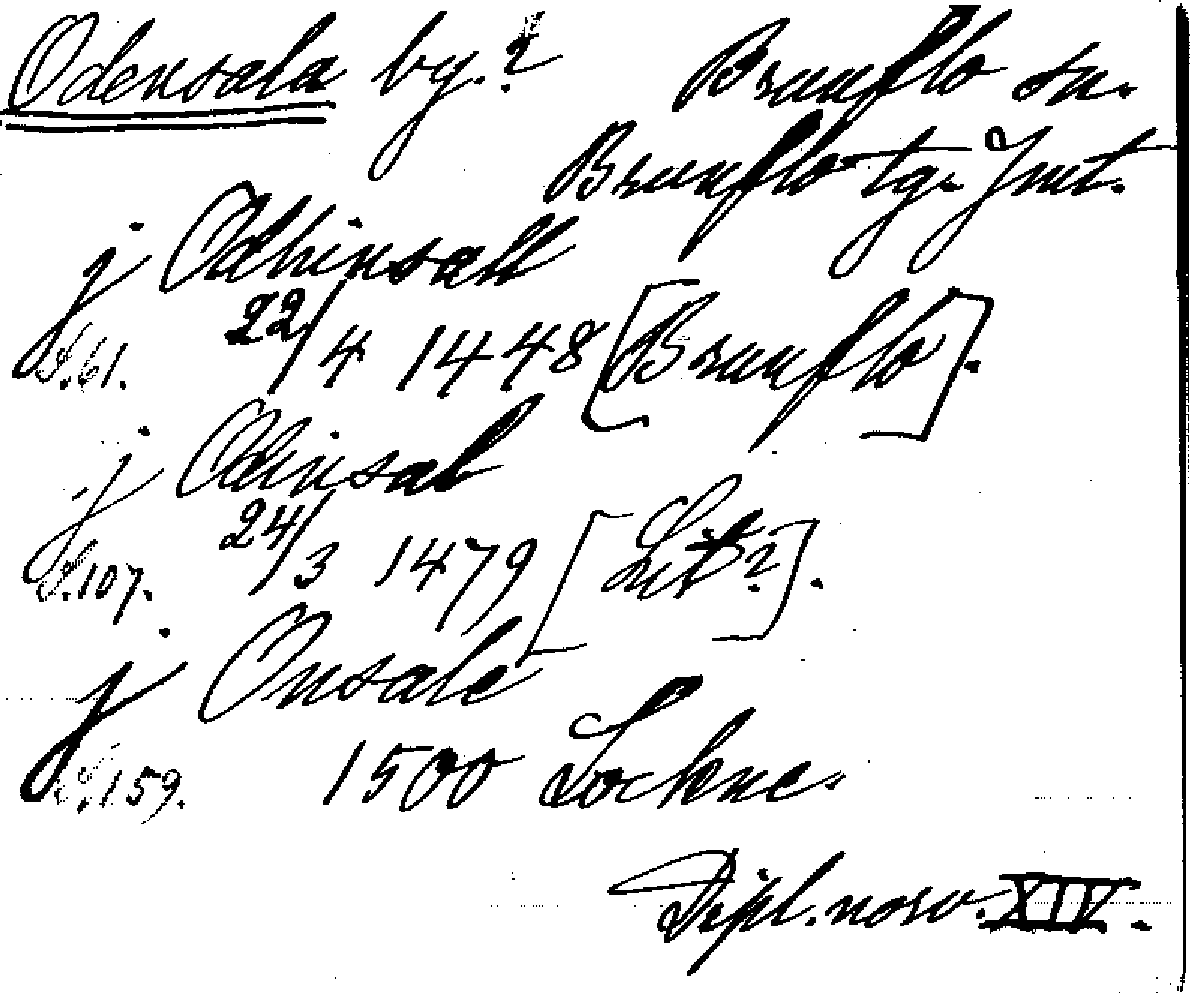 Odensala by.? Brunflo sn.
Brunflo tg. Jmt.
j Odhinsall
S.61. 22/4 1448 [Brunflo].
j Odinsal
S.107. 24/3 1479 [Lit?].
j Onsale
S.159. 1500 Lockne.
Dipl. norv. XIV.